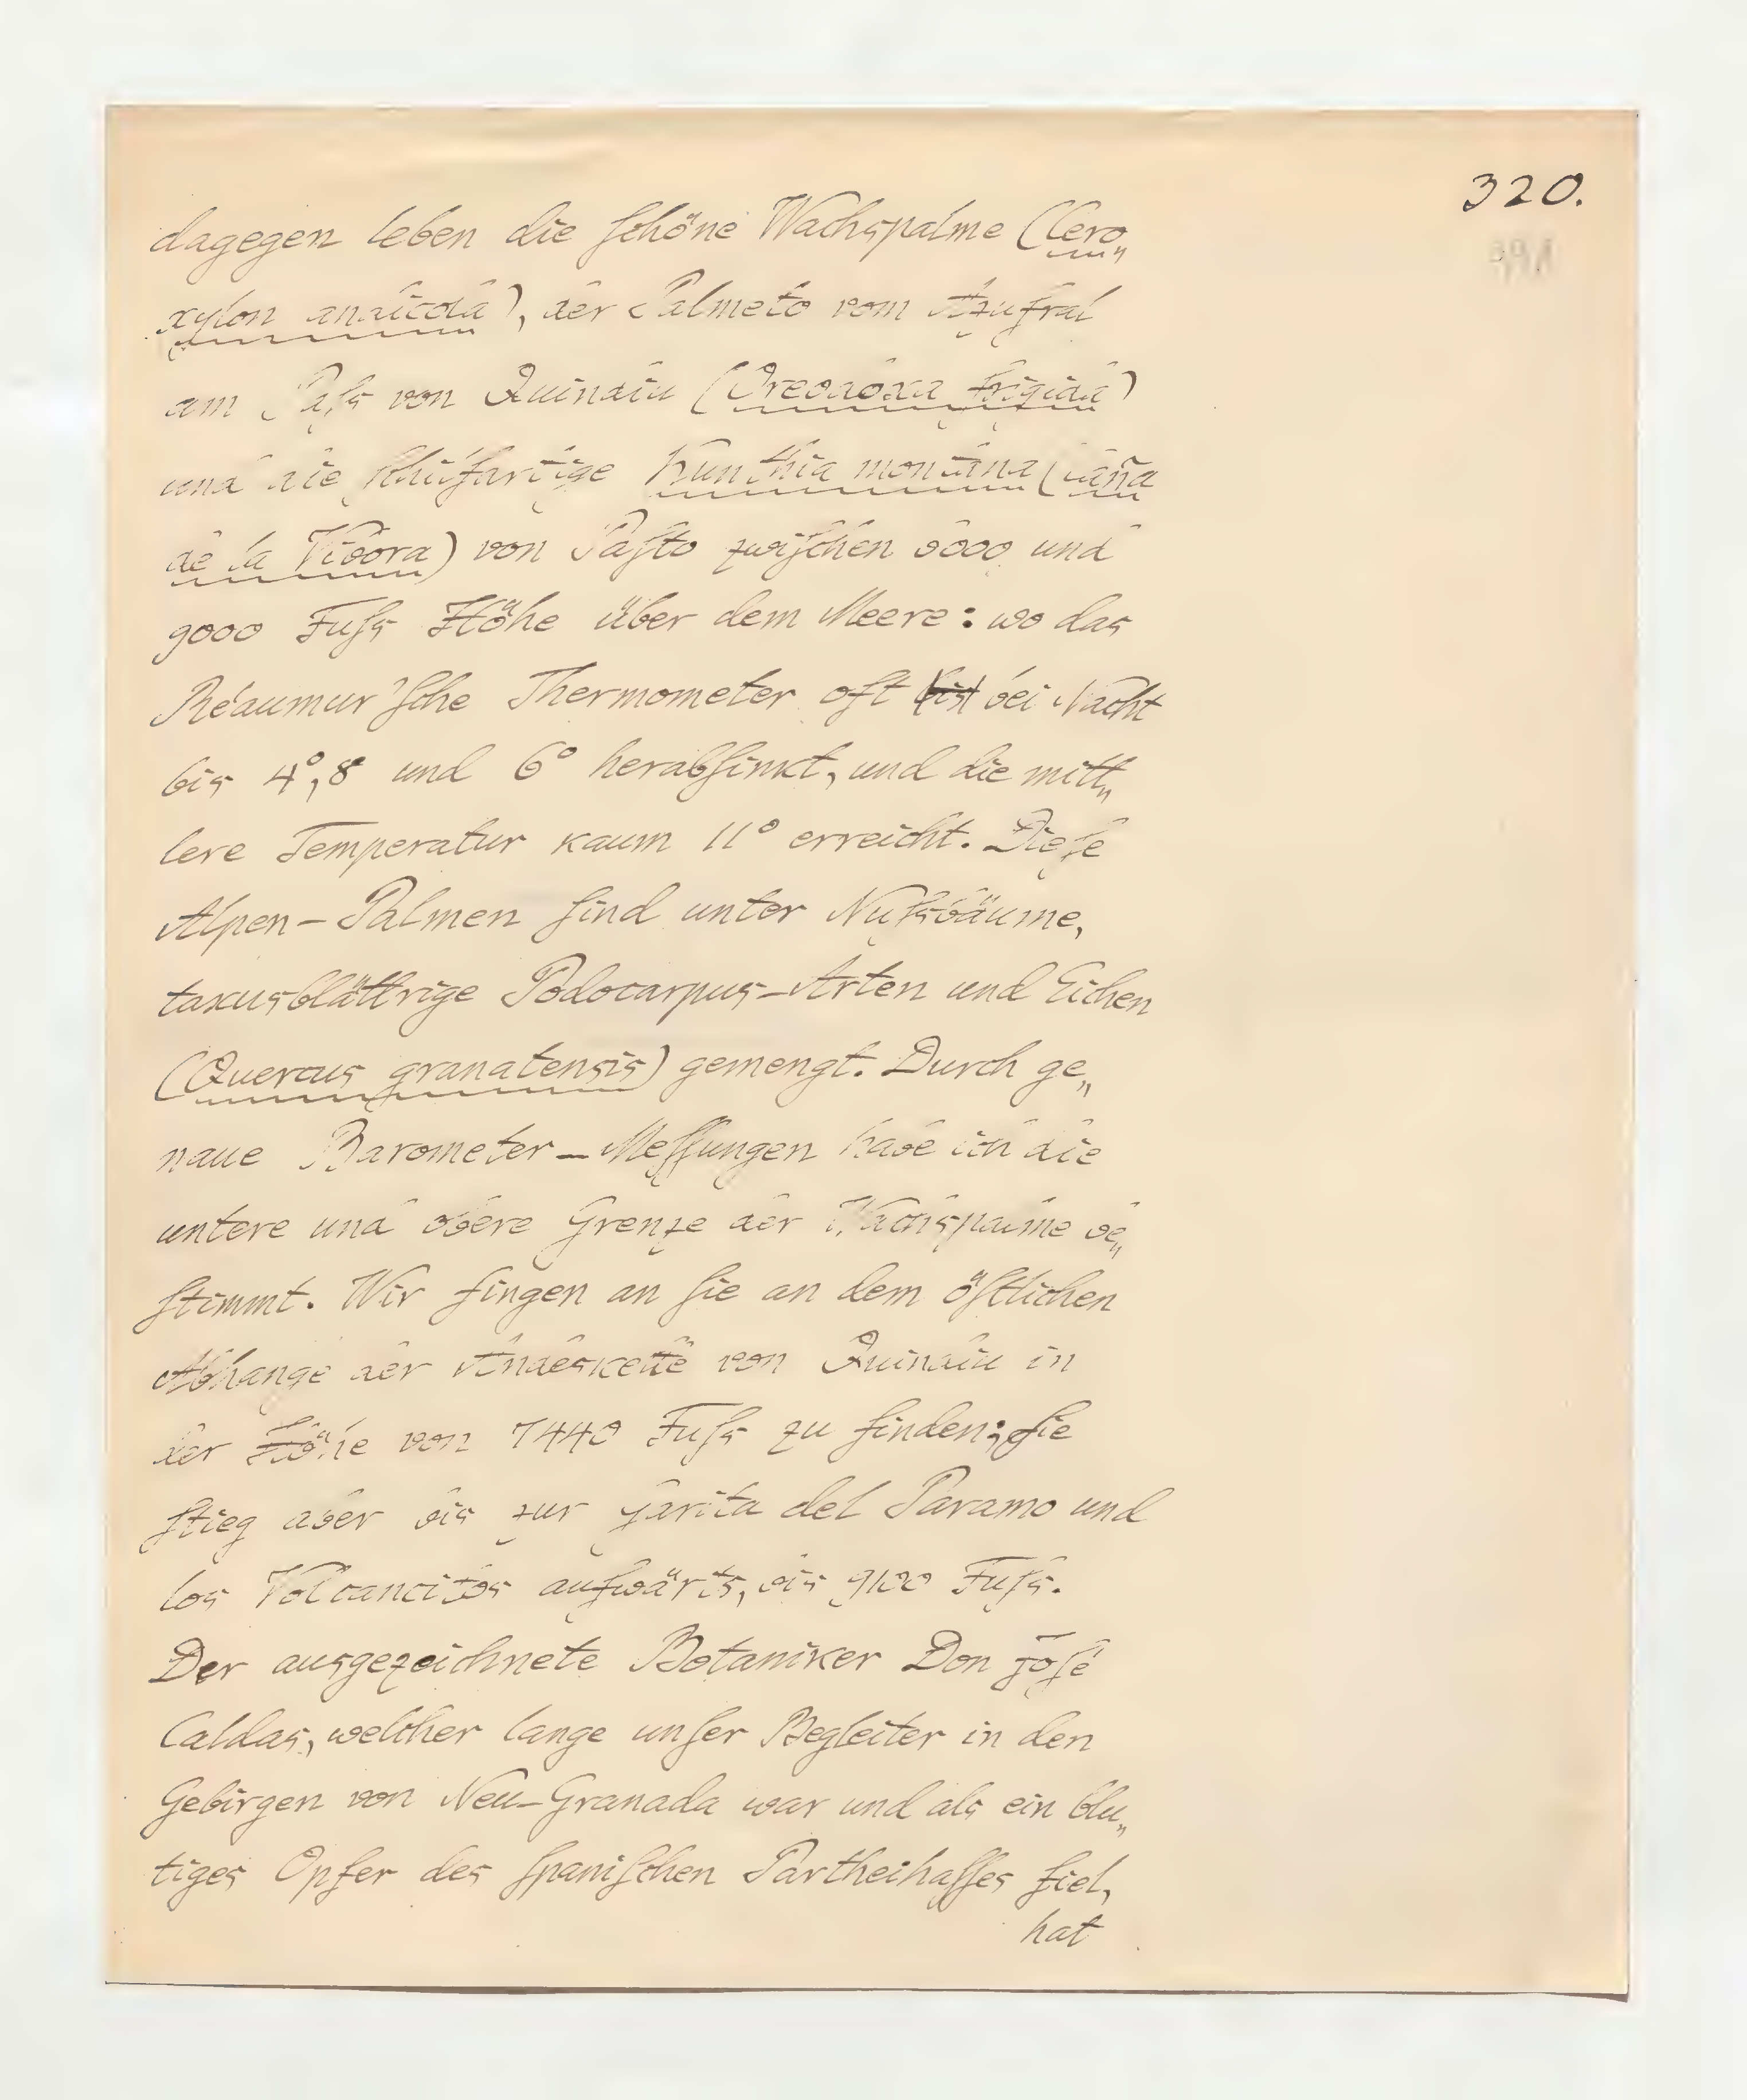 320.
dagegen leben die schöne Wachspalme (Cero„
xylon andicola), der Palmeto vom Azufral
am Paſs von Quindiu (Oreodoxa frigida)
und die schilfartige Kunthia montana (caña
de la Vibora) von Pasto zwischen 8000 und
9000 Fuſs Höhe über dem Meere: wo das
Réaumur'sche Thermometer oft bis bei Nacht
bis 4°,8 und 6° herabsinkt, und die mitt„
lere Temperatur kaum 11° erreicht. Diese
Alpen-Palmen sind unter Nuſsbäume,
taxusblättrige Podocarpus-Arten und Eichen
(Quercus granatensis) gemengt. Durch ge„
naue Barometer-Messungen habe ich die
untere und obere Grenze der Wachspalme be„
stimmt. Wir fingen an sie an dem östlichen
Abhange der Andeskette von Quindiu in
der Höhe von 7440 Fuſs zu finden; sie
stieg aber bis zur Garita del Paramo und
los Volcancitos aufwärts, bis 9100 Fuſs.
Der ausgezeichnete Botaniker Don José
Caldas, welcher lange unser Begleiter in den
Gebirgen von Neu-Granada war und als ein blu„
tiges Opfer des spanischen Partheihasses fiel,
hat